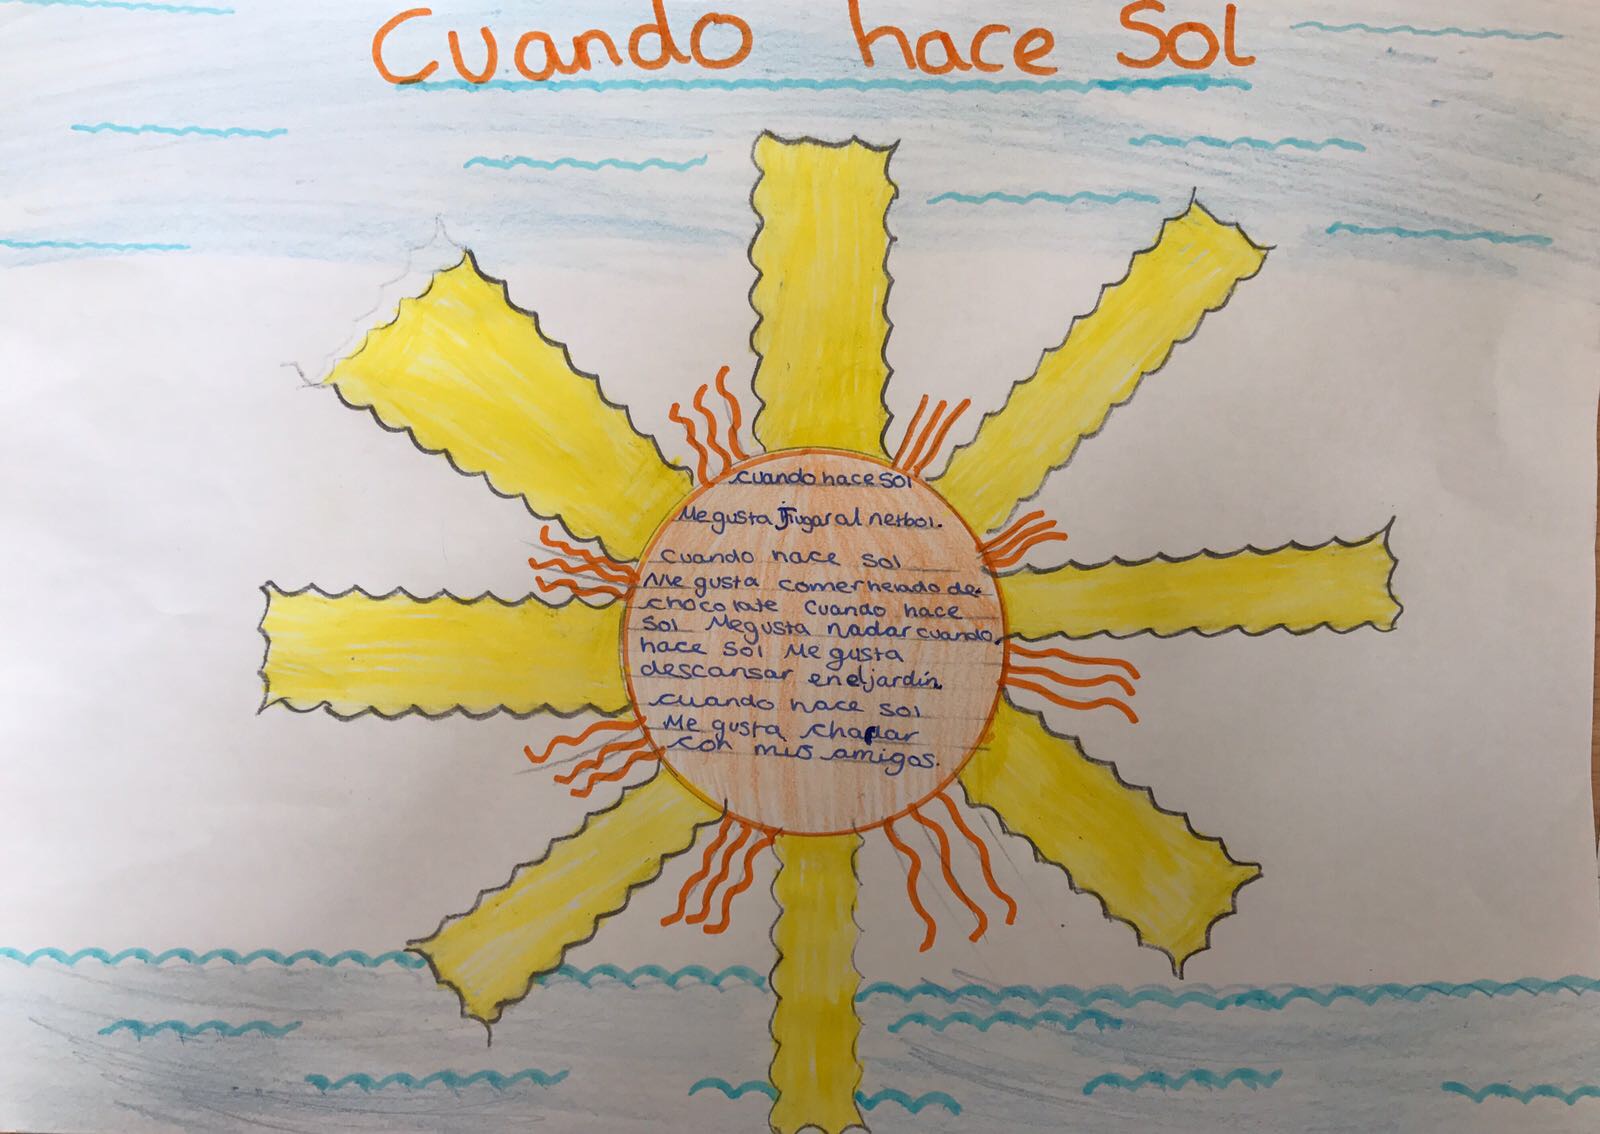 Cuando hace Sol
cuando hace sol
Me gusta Jugar al netbol.
Cuando hace sol
Me gusta comer helado de
chocolate Cuando hace
Sol Me gusta nadar cuando
hace sol Me gusta
descansar en el jardín.
cuando hace sol
Me gusta charlar
con mis amigos.